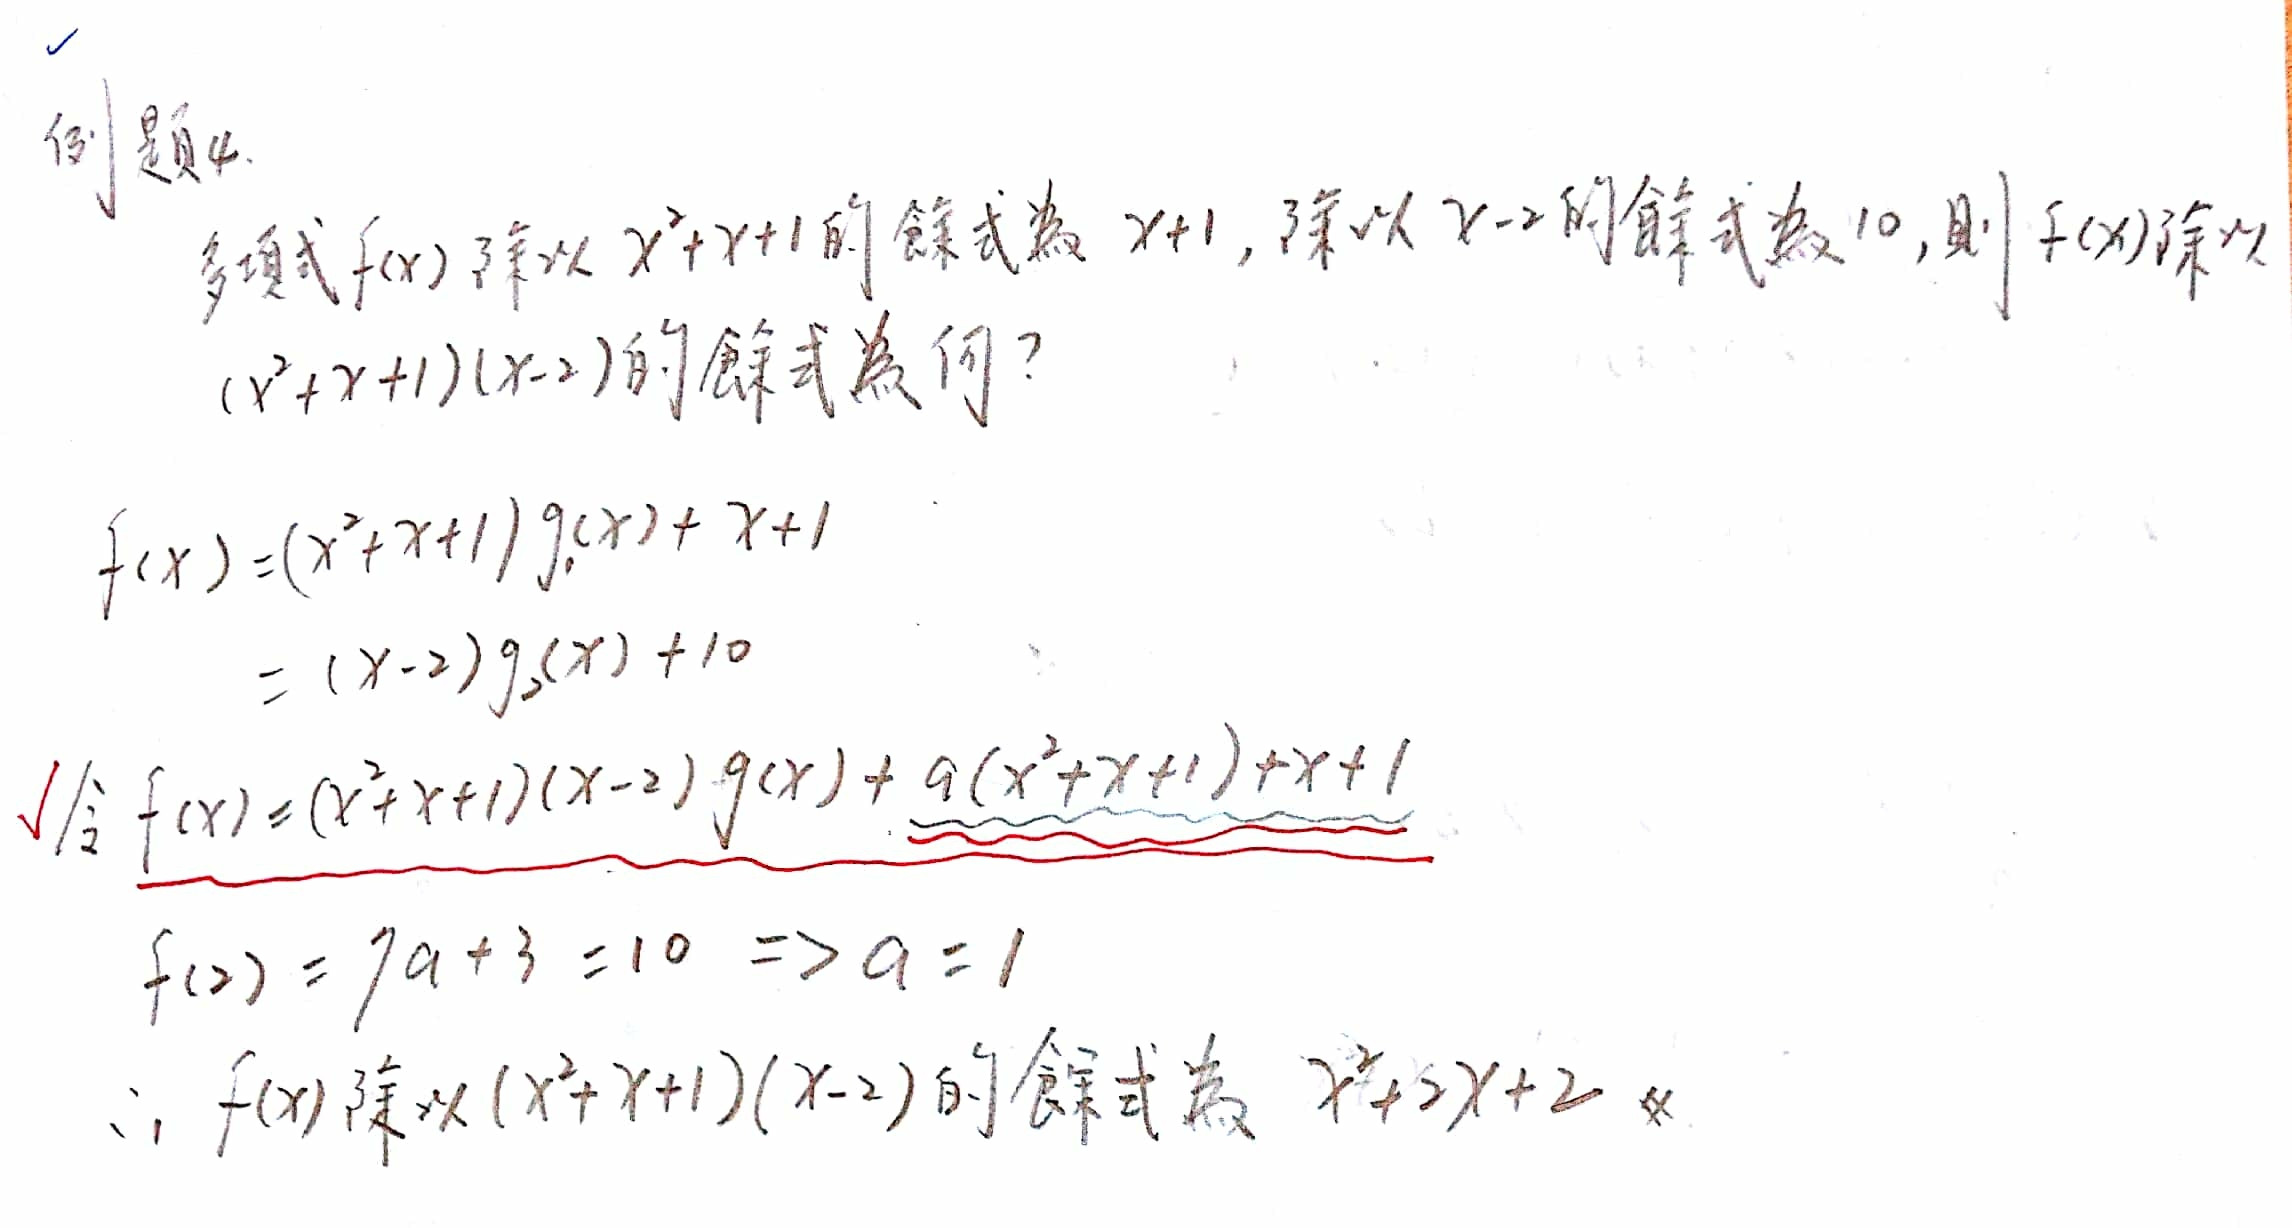 例題4.
多項式f(x)除以 x²+x+1的餘式為 x+1, 除以 x-2的餘式為10, 則 f(x)除以
(x²+x+1)(x-2)的餘式為何?
f(x)=(x²+x+1)g₁(x)+x+1
=(x-2)g₂(x)+10
令 f(x)=(x²+x+1)(x-2)g(x)+a(x²+x+1)+x+1
f(2)=7a+3=10 => a=1
∴ f(x)除以(x²+x+1)(x-2)的餘式為 x²+2x+2 ※